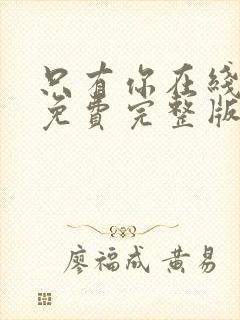 只有你在线
免费完整版
廖福成 黄易